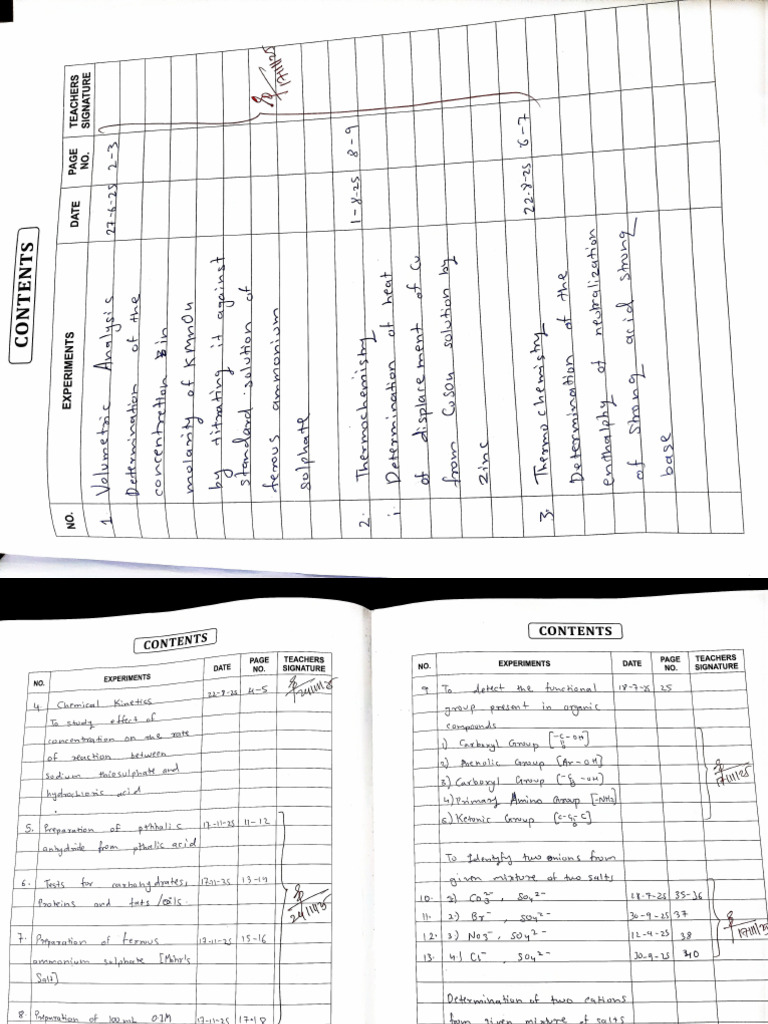 CONTENTS
NO. EXPERIMENTS DATE PAGE NO. TEACHERS SIGNATURE
1. Volumetric Analysis 27-6-25 2-3
Determination of the
concentretion in
molarity of KMnO4
by titrating it against
standard solution of
ferous ammonium
sulphate
17/11/25
2. Thermochemistry 1-8-25 8-9
i. Determination of heat
of displacement of Cu
from CuSO4 solution by
zinc
3. Thermochemistry 22-8-25 6-7
Determination of the
enthalphy of neutralization
of strong acid strong
base
CONTENTS
NO. EXPERIMENTS DATE PAGE NO. TEACHERS SIGNATURE
4 Chemical Kinetics 22-8-25 4-5 24/11/25
To study effect of
concentration on the rate
of reaction between
sodium thiosulphate and
hydrochloric acid
5. Preparation of pthhalic 17-11-25 11-12
anhydride from pthalic acid
6. Tests for carbohydrates, 17-11-25 13-14
Proteins and fats /oils.
24/11/25
7. Preparation of ferrous 17-11-25 15-16
ammonium sulphate [Mohr's
Salt]
8. Preparation of 100mL 0.1M 17-11-25 17-18
CONTENTS
NO. EXPERIMENTS DATE PAGE NO. TEACHERS SIGNATURE
9 To detect the functional 18-7-25 25
group present in organic
compounds
1) Carbxyl Group [-C-OH]
2) Phenolic Group [Ar-OH]
3) Carboxyl Group [-C-OH]
4) Primary Amino Group [-NH2]
5) Ketonic Group [C-C-C]
17/11/25
To Identify two anions from
given mixture of two salts
10. 1) CO3²⁻, SO4²⁻ 18-7-25 35-36
11. 2) Br⁻, SO4²⁻ 30-9-25 37
12. 3) NO3⁻, SO4²⁻ 12-9-25 38
13. 4) Cl⁻, SO4²⁻ 30-9-25 40
17/11/25
Determination of two cations
from given mixture of salts